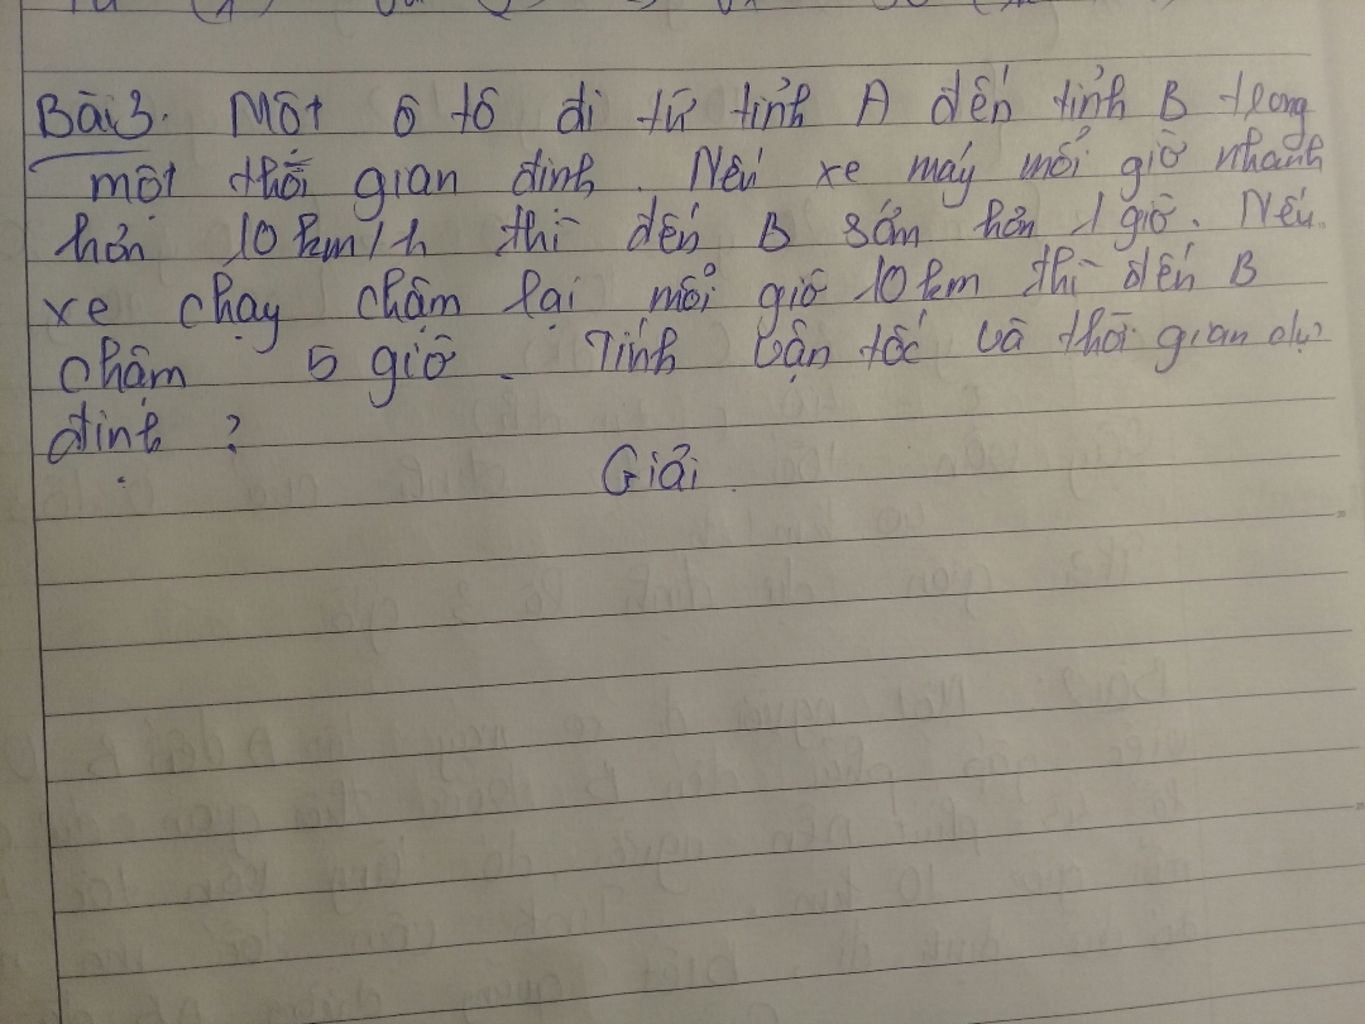 Bài 3. Một ô tô đi từ tỉnh A đến tỉnh B trong
một thời gian định. Nếu xe máy mỗi giờ nhanh
hơn 10 km/h thì đến B sớm hơn 1 giờ. Nếu
xe chạy chậm lại mỗi giờ 10 km thì đến B
chậm 5 giờ. Tính vận tốc và thời gian dự
định ?
Giải